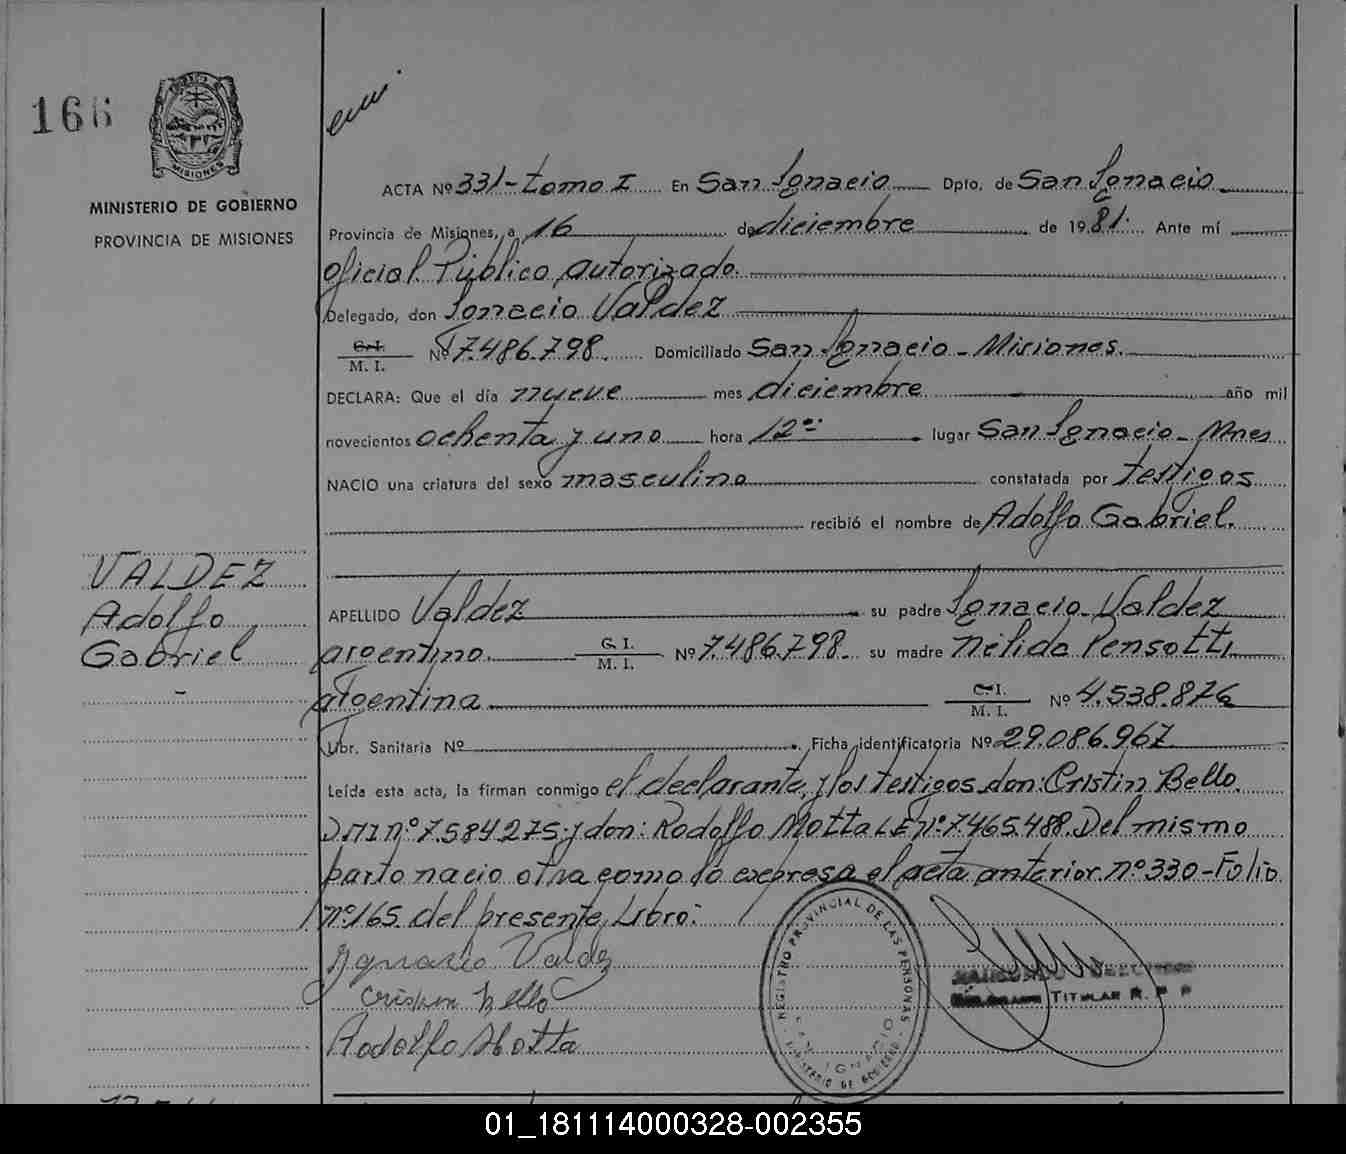 166
MISIONES
MINISTERIO DE GOBIERNO
PROVINCIA DE MISIONES
ACTA Nº 331-tomo I En San Ignacio Dpto. de San Ignacio
Provincia de Misiones, a 16 de diciembre de 1981. Ante mí
oficial Público autorizado.
Delegado, don Ignacio Valdez
C.I. / M. I. Nº 7.486.798. Domiciliado San Ignacio - Misiones.
DECLARA: Que el día nueve mes diciembre año mil
novecientos ochenta y uno hora 12 lugar San Ignacio - Mnes
NACIO una criatura del sexo masculino constatada por testigos
recibió el nombre de Adolfo Gabriel.
VALDEZ
Adolfo
Gabriel
-
APELLIDO Valdez su padre Ignacio Valdez
argentino. C. I. / M. I. Nº 7.486.798. su madre Nélida Pensotti
argentina C.I. / M. I. Nº 4.538.876
Libr. Sanitaria Nº Ficha identificatoria Nº 29.086.967
Leída esta acta, la firman conmigo el declarante, y los testigos don: Cristin Bello.
D.M.I nº 7.584.275 y don: Rodolfo Motta L.E nº 7.465.488. Del mismo
parto nacio otra como lo expresa el acta anterior nº 330-Folio
nº 165 del presente Libro:
Ygnacio Valdez
Crispin Bello
Rodolfo Motta
REGISTRO PROVINCIAL DE LAS PERSONAS
SAN IGNACIO
MINISTERIO DE GOBIERNO
TITULAR R. P P
01_181114000328-002355